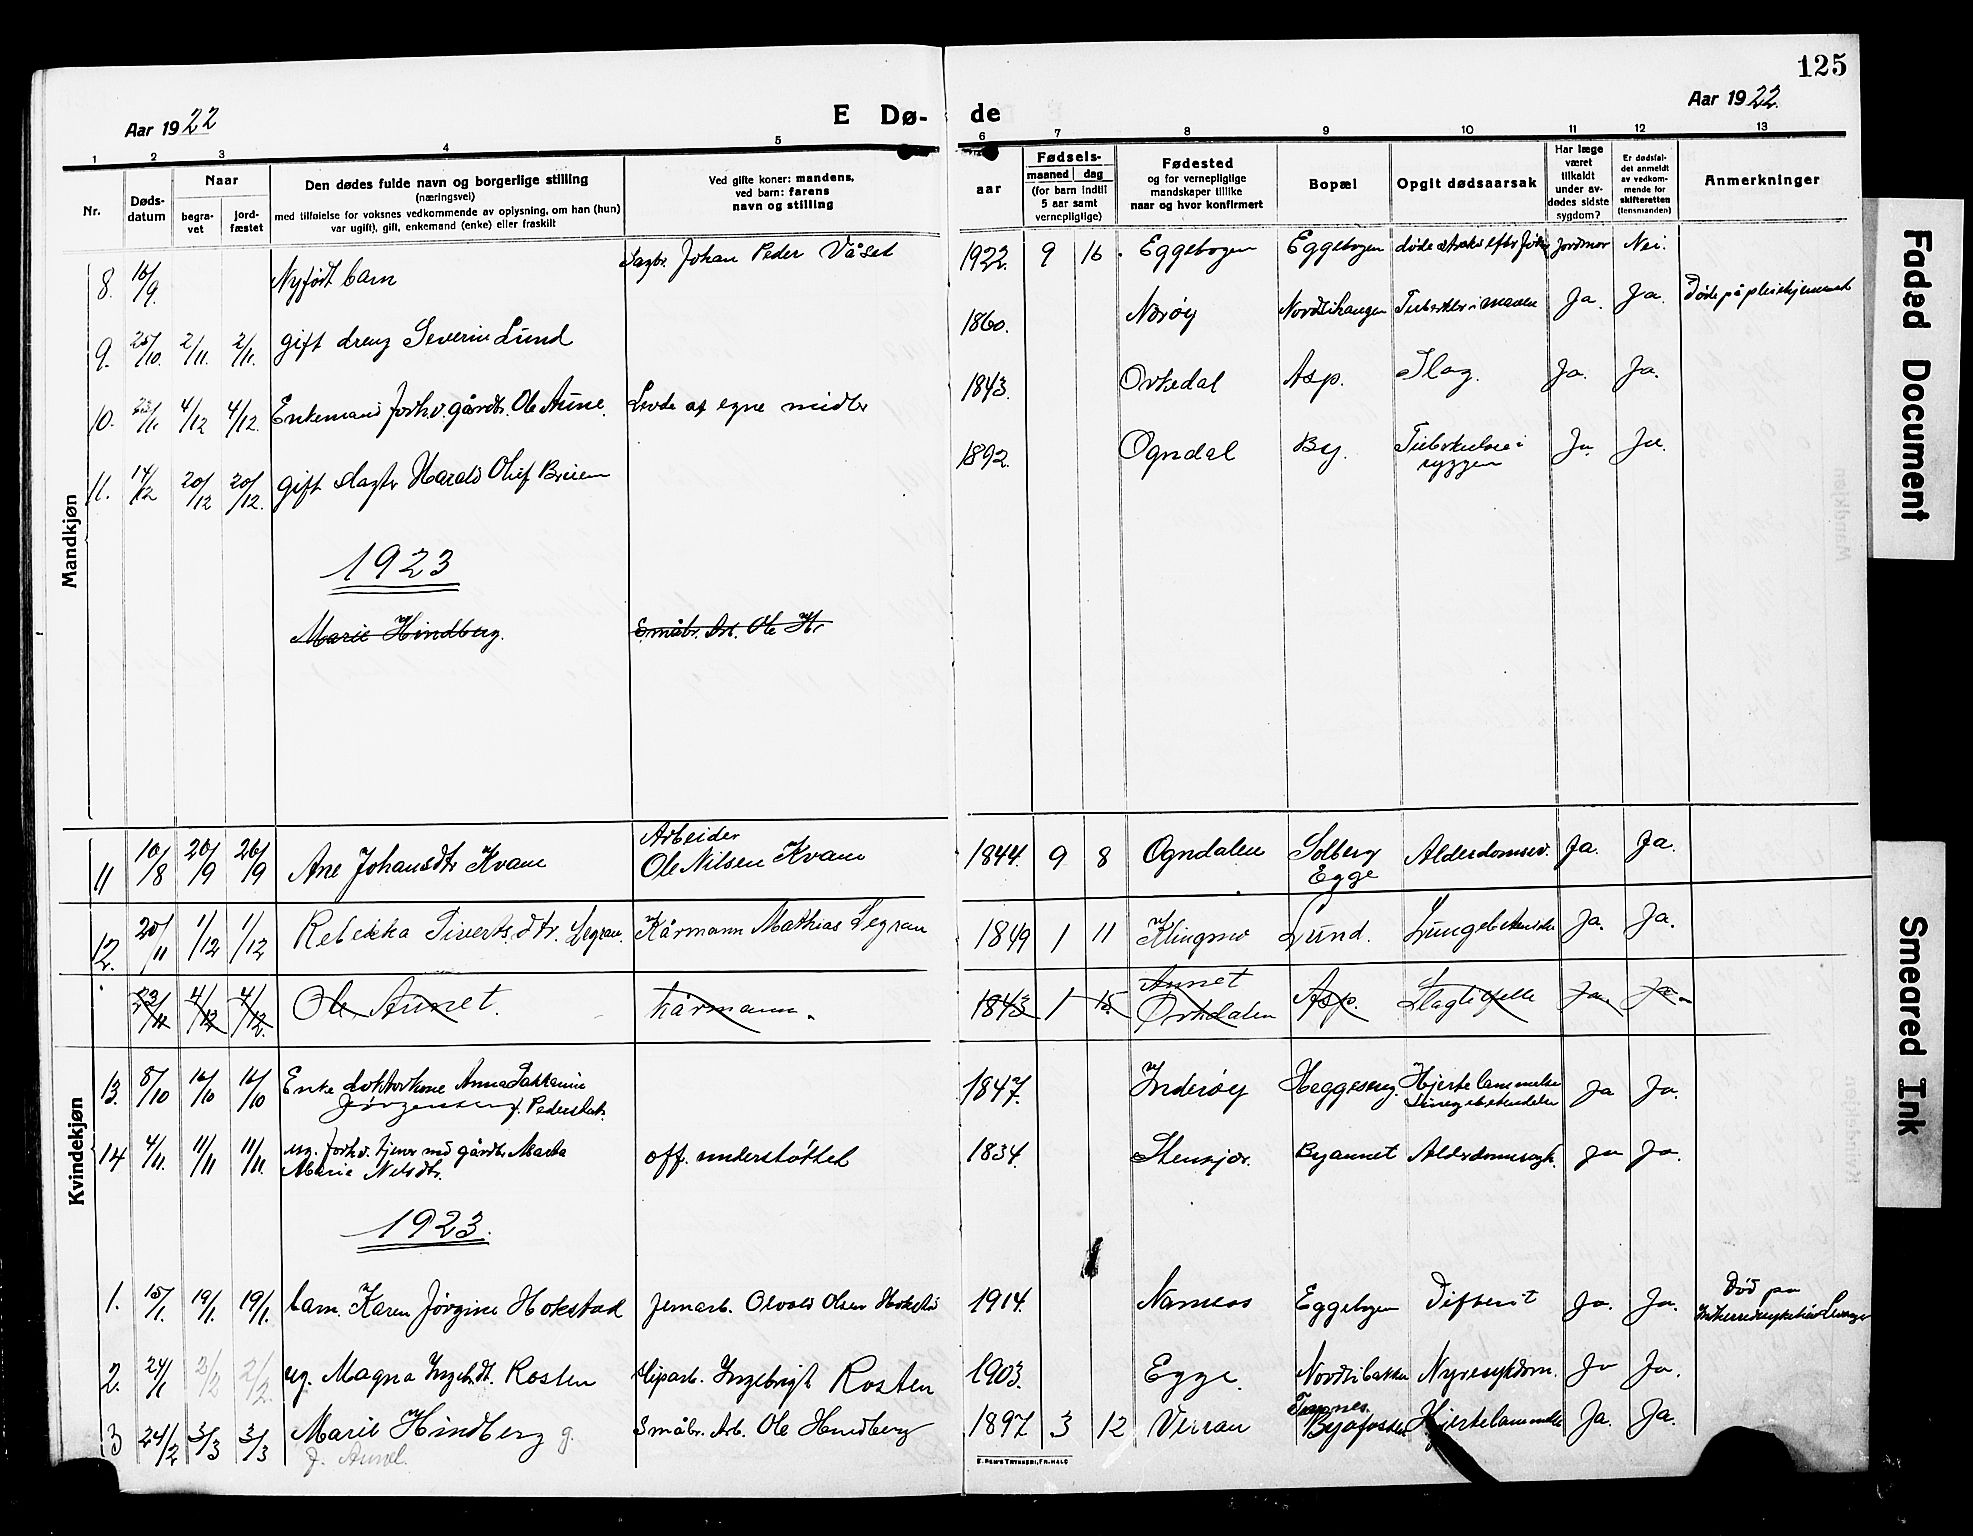 125
Aar 1922
E Dø- de
Aar 1922.
1 2 3 4 5 6 7 8 9 10 11 12 13
Nr.
Døds-
datum
Naar
begra-
vet
jord-
fæstet
Den dødes fulde navn og borgerlige stilling
(næringsvei)
med tilføielse for voksnes vedkommende av oplysning, om han (hun)
var ugift, gift, enkemand (enke) eller fraskilt
Ved gifte koner: mandens,
ved barn: farens
navn og stilling
aar
Fødsels-
maaned dag
(for barn indtil
5 aar samt
vernepligtige)
Fødested
og for vernepligtige
mandskaper tillike
naar og hvor konfirmert
Bopæl
Opgit dødsaarsak
Har læge
været
tilkaldt
under av-
dødes sidste
sygdom?
Er dødsfal-
det anmeldt
av vedkom-
mende for
skifteretten
(lensmanden)
Anmerkninger
Mandkjøn
8. 16/9. Nyfødt barn Sagbr. Johan Peder Våset 1922. 9 16. Eggebogen Eggebogen døde straks efter Jordmor Nei.
9. 25/10. 2/11. 2/11. gift dreng Severin Lund 1860. Nærøy Nordsihaugen Tuberkler i maven Ja. Ja. Døde på pleiehjemmet
10. 4/12 4/12. Enkemand forhv. gårdbr. Ole Aune. Levde af egne midler 1843. Orkedal Asp. Slag. Ja. Ja.
11. 14/12 20/12 20/12. gift slagtr Harald Oluf Breiem 1892. Ogndal By. Tuberkulose i
ryggen Ja. Ja.
1923
Marie Hindberg. Småbr. Arb. Ole H.
Kvindekjøn
11 10/8 20/9 20/9 Ane Johansdtr Kvam Arbeider
Ole Nilsen Kvam 1844. 9 8 Ogndalen Solberg
Egge Alderdomssv. Ja. Ja.
12. 20/11 1/12 1/12 Rebekka Sivertsdtr. Segran. Kårmann Mathias Segran 1849 1 11 Klingmo Lund. Lungebetændelse Ja. Ja.
23/11 4/12 4/12. Ole Aunet. Kårmann. 1843 1 15. Aunet
Orkdalen Asp. Slagtilfelle Ja. Ja.
13. 8/10 16/10 16/10 Enke Anna
Jørgensen f. 1847. Inderøy Heggesveg. Hjertelammelse
Lungebetændelse Ja Ja.
14 4/11. 11/11 11/11. ug. forhv. tjener ved gårdbr. Marta
Marie Nilsdtr. off. understøttet 1834. Stenkjær. Byaunet Alderdomssvagh. Ja Ja.
1923.
1. 15/1. 19/1. 19/1. barn. Karen Jørgine Hokstad Jernarb. Osvald Olsen Hokstad 1914. Namsos Eggebogen Difterit Ja. Ja. Død paa
Levanger
2. 24/1 2/2 2/2. ug. Magna Ingeb.dt. Rosten Sliparb. Ingebrigt Rosten 1903. Egge. Nordsibakken Nyresykdom. Ja Ja.
3 24/2 3/3 3/3 Marie Hindberg g.
f. Aunet. Småbr. Arb. Ole Hindberg 1897 3 12 Verran Byafossen Hjertelammelse Ja. Ja.
E. Sem's Trykkeri, Fr.hald
Faded Document
Smeared Ink